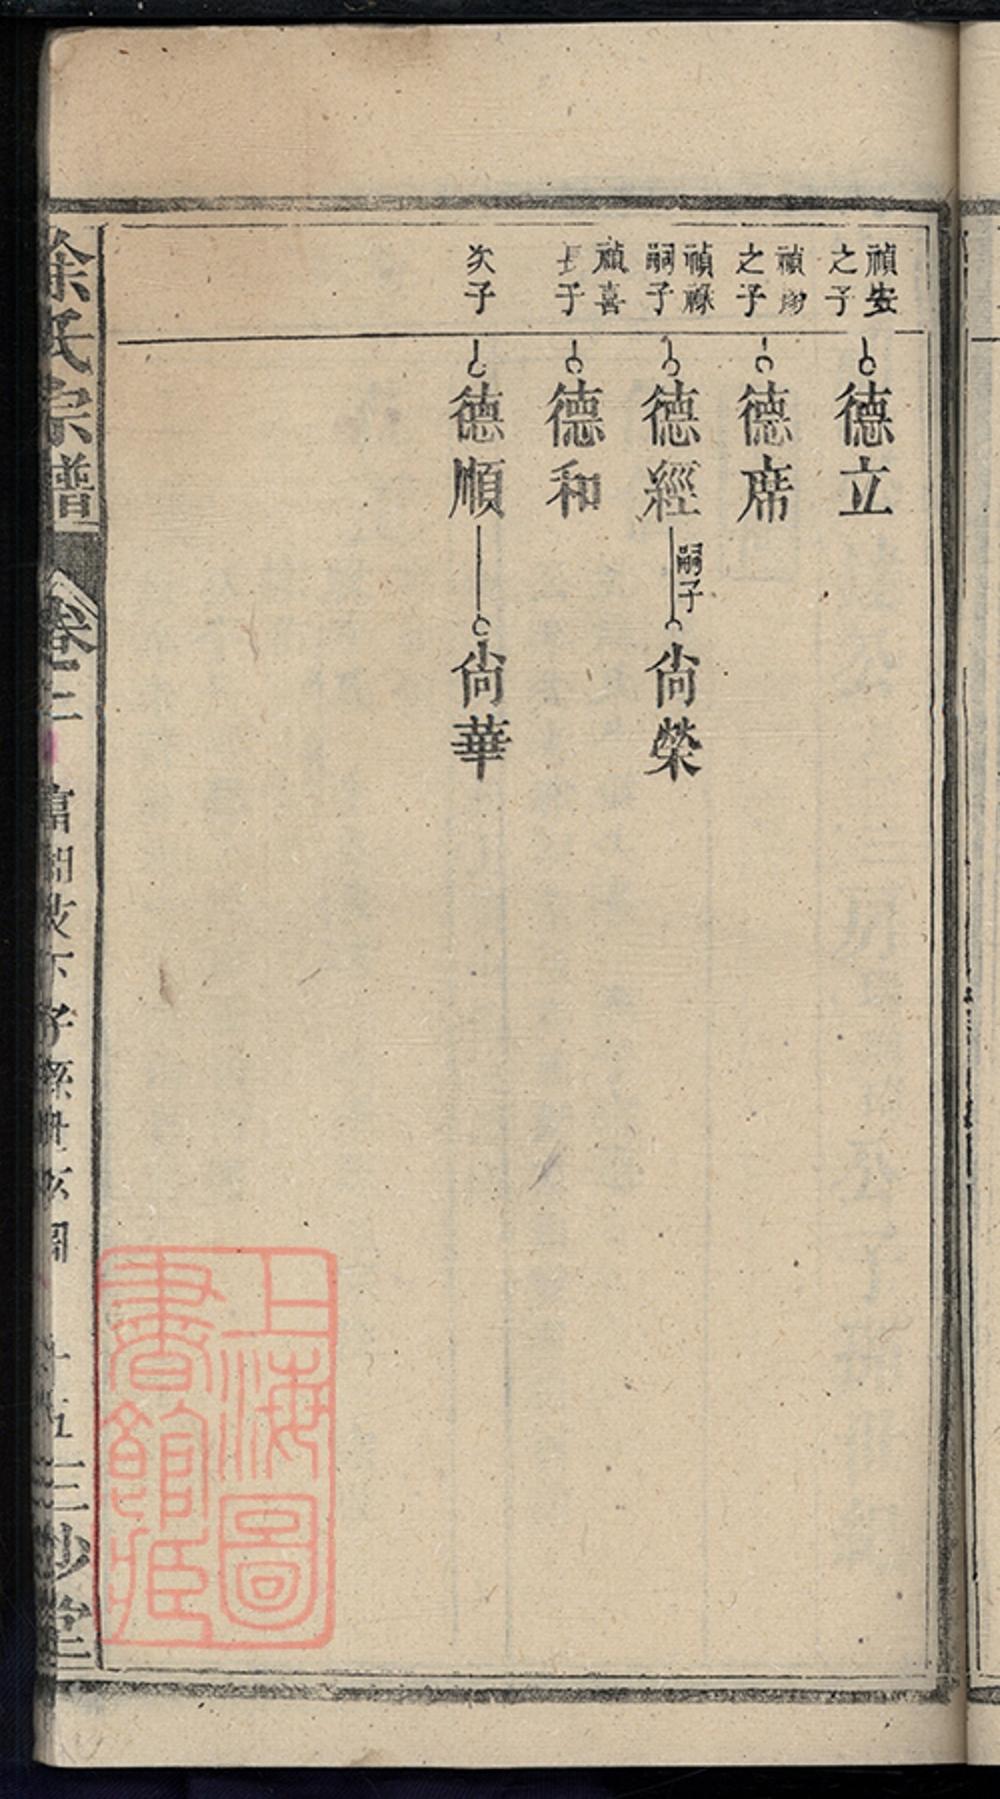 禎安之子
德立
禎
之子
德席
禎祿嗣子
德經
嗣子
尙榮
禎喜長子
德和
次子
德順
尙華
徐氏宗譜
卷二
富閏汝下子孫世次圖
十五
三妙堂
上海圖書館藏